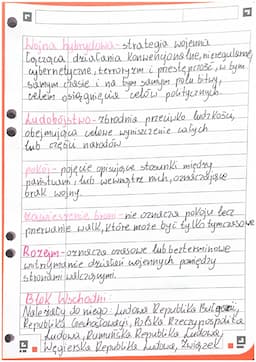 Wojna hybrydowa - strategia wojenna
łącząca działania konwencjonalne, nieregularne,
cybernetyczne, terroryzm i przestępczość, w tym
samym czasie i na tym samym polu bitwy,
celem osiągnięcia celów politycznych.
Ludobójstwo - zbrodnia przeciwko ludzkości,
obejmująca celowe wyniszczenie całych
lub części narodów
pokój - pojęcie opisujące stosunki między
państwami lub wewnątrz nich, oznaczające
brak wojny.
Zawieszenie broni - nie oznacza pokoju lecz
przerwanie walk, które może być tylko tymczasowe
Rozejm - oznacza czasowe lub bezterminowe
wstrzymanie działań wojennych pomiędzy
stronami walczącymi.
Blok Wschodni
Należały do niego: Ludowa Republika Bułgarii,
Republika Czechosłowacji, Polska Rzeczypospolita
Ludowa, Rumuńska Republika Ludowa,
Węgierska Republika Ludowa, Związek